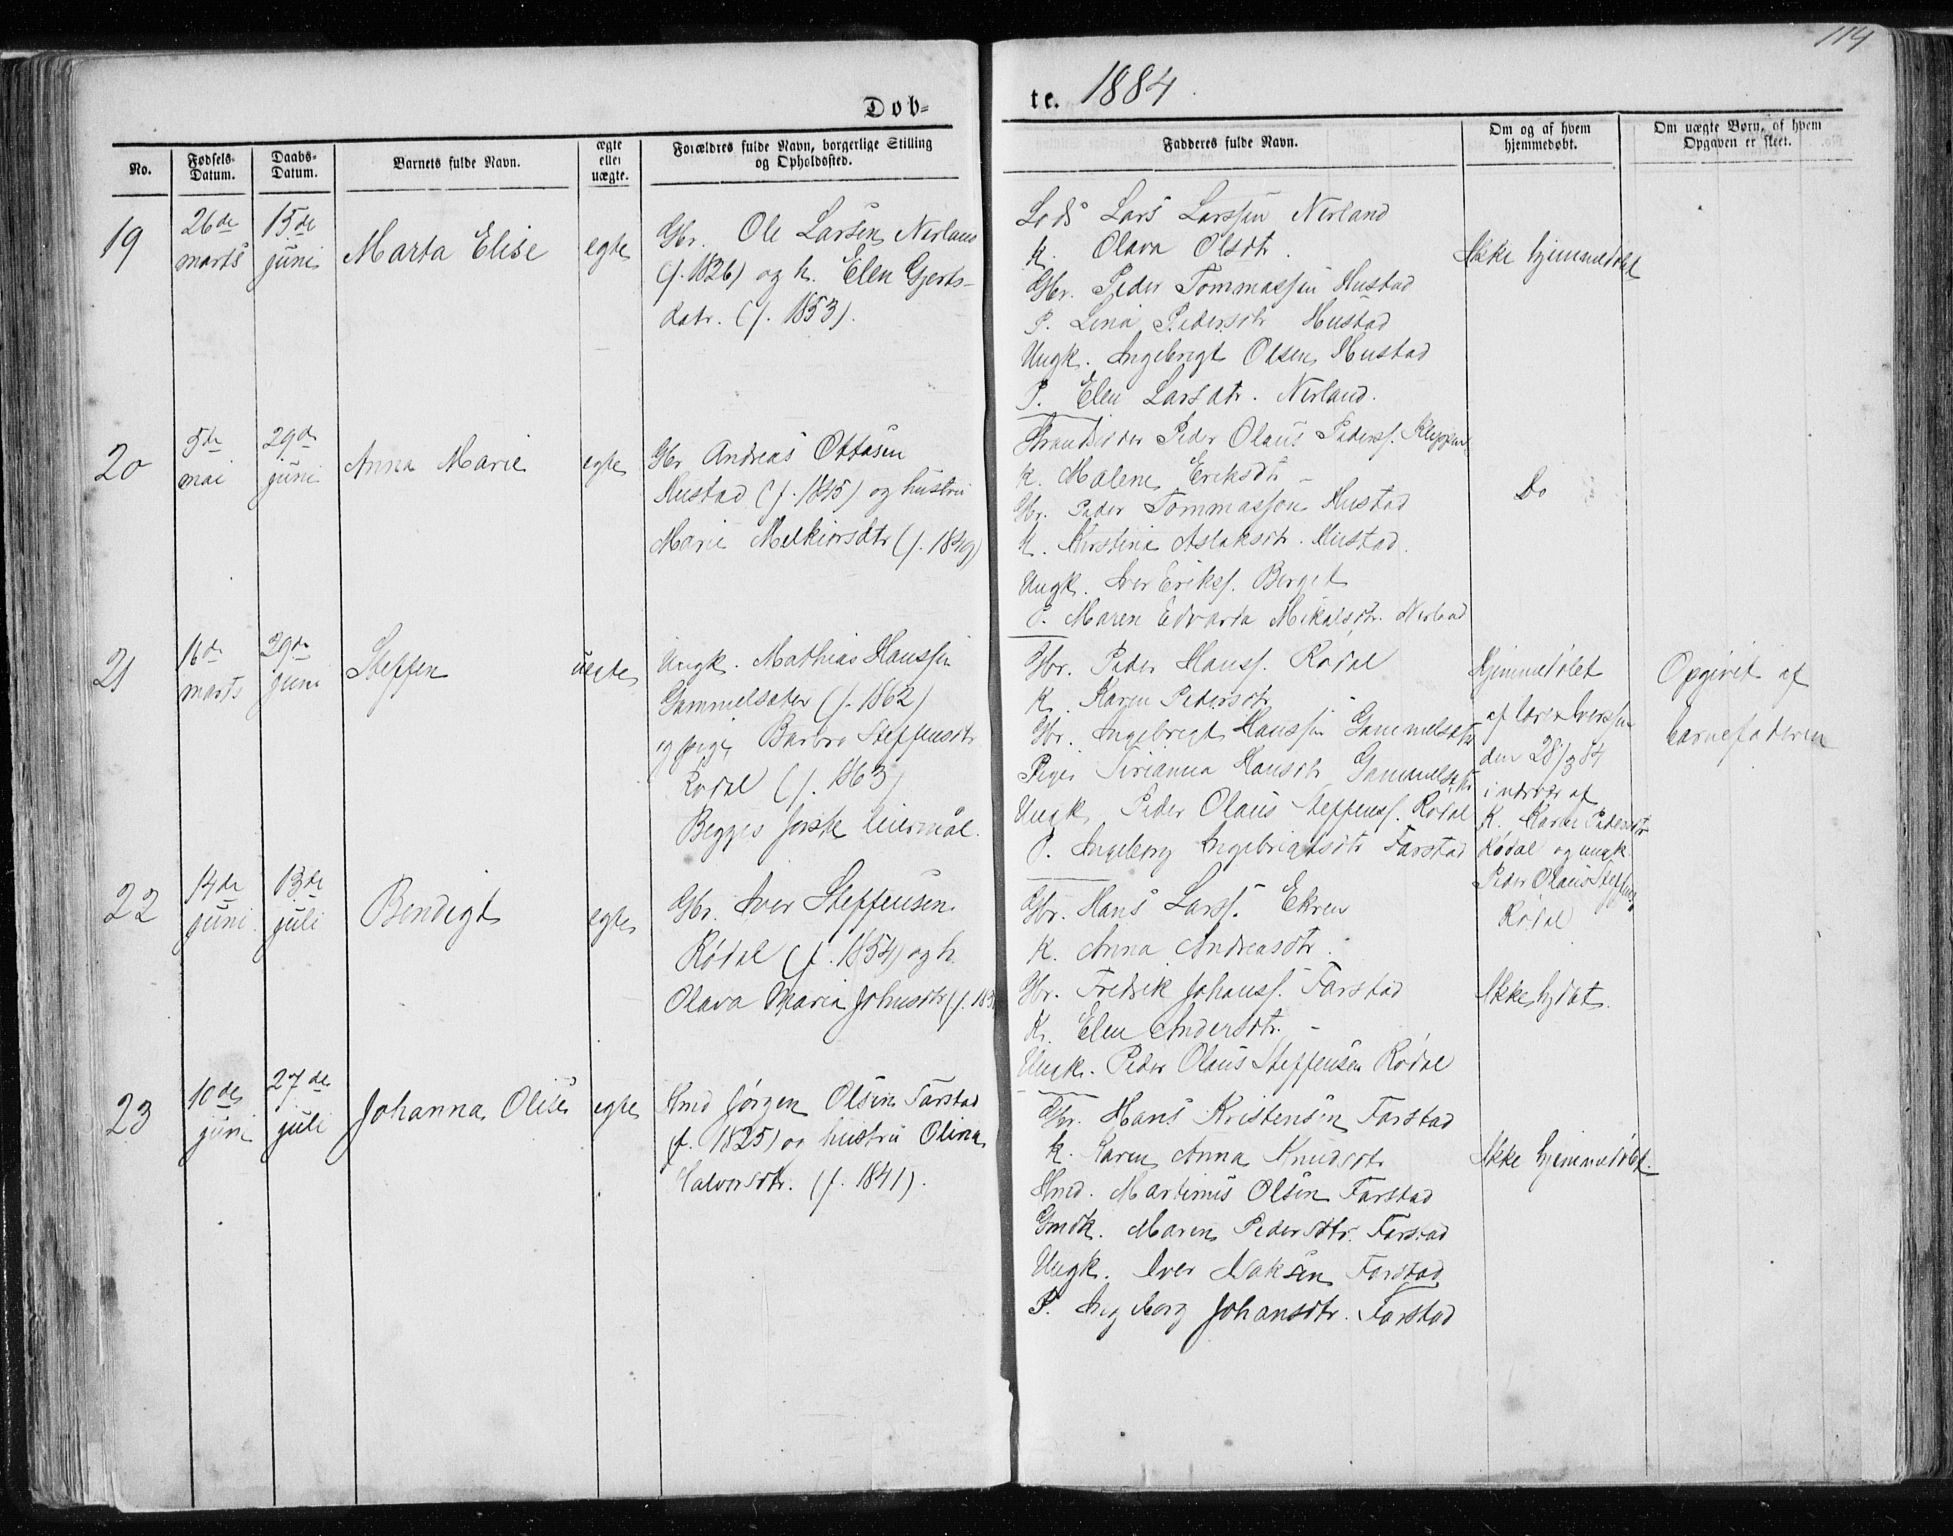 114
Døb-
te. 1884.
No.
Fødsels-
Datum.
Daabs-
Datum.
Barnets fulde Navn.
ægte
eller
uægte.
Forældres fulde Navn, borgerlige Stilling
og Opholdssted.
Fadderes fulde Navn.
Om og af hvem
hjemmedøbt.
Om uægte Børn, af hvem
Opgaven er skeet.
19
26de
marts
15de
juni
Marta Elise
egte
Gbr. Ole Larsen Nerland
(f. 1826) og h. Elen Gjerts-
datr. (f. 1853).
Lars Larssen Nerland
K. Olava Olsdtr.
Gbr. Peder Tommassen Hustad
P. Lina Pedersdtr Hustad
Ungk. Ingebrigt Olsen Hustad
P. Elen Larsdtr. Nerland.
Ikke hjemmedøbt
20
5de
mai
29de
juni
Anna Marie
egte
Gbr Andreas Ottosen
Hustad (f. 1845) og hustru
Marie Melkiorsdtr (f. 1849)
Strandsidder Peder Olaus Peders.
K. Malene Eriksdtr –
Gbr. Peder Tommassen Hustad
K. Kirstine Aslaksdtr. Hustad.
Ungk. Iver Eriks. Berget
P. Maren Edvarda Mikalsdtr. Nerland
Do
21
16de
marts
29de
juni
Steffen
uegte
Ungk. Mathias Hanssen
Gammelsæter (f. 1862)
og pige Barbro Steffensdtr
Rødal (f. 1863)
Begges første leiermål.
Gbr. Peder Hanss. Rødal
K. Karen Pedersdtr –
Gbr. Ingebrigt Hanssen Gammelsæter
Pige Hansdtr Gammelsætr
Ungk Peder Olaus Steffenss. Rødal
P. Ingeborg Ingebrigtsdtr Farstad
Hjemmedøbt
af lærer Iverssen
den 28/3 84
i nærvær af
K. Karen Pedersdtr
Rødal og ungk.
Peder Olaus Steffens.
Rødal
Opgivet af
barnefaderen
22
14de
juni
13de
juli
Bendigt
egte
Gbr. Iver Steffensen
Rødal (f. 1854) og h.
Olava Maria Johnsdtr (f. 185
Gbr. Hans Larss. Ekren
K. Anna Andreasdtr.
Gbr. Fredrik Johanss. Farstad
K. Elen Andersdtr. –
Ungk. Peder Olaus Steffensen Rødal
Ikke hjdbt.
23
10de
juni
27de
juli
Johanna Olise
egte
Hmd Jørgen Olsen Farstad
(f. 1825) og hustru Olina
Halvorsdtr. (f. 1841).
Gbr. Hans Kristensen Farstad
K. Karen Anna Knudsdtr
Hmd. Martinus Olsen Farstad
Gmdk. Maren Pedersdtr. Farstad
Ungk. Iver Farstad
P. Ingeborg Johansdtr. Farstad
Ikke hjemmedøbt.